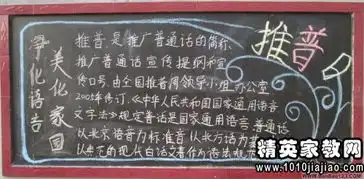 净化语言
美化家园
推普
推普,是推广普通话的简称,
推广普通话宣传提纲和宣
传口号,由全国推普周领导小组办公室
2002年修订,《中华人民共和国国家通用语言
文字法》规定普话是国家通用语言,普通话
以北京语音为标准音以北方话为
以典范的现代白话文著作为语法
精英家教网
www.1010jiajiao.com